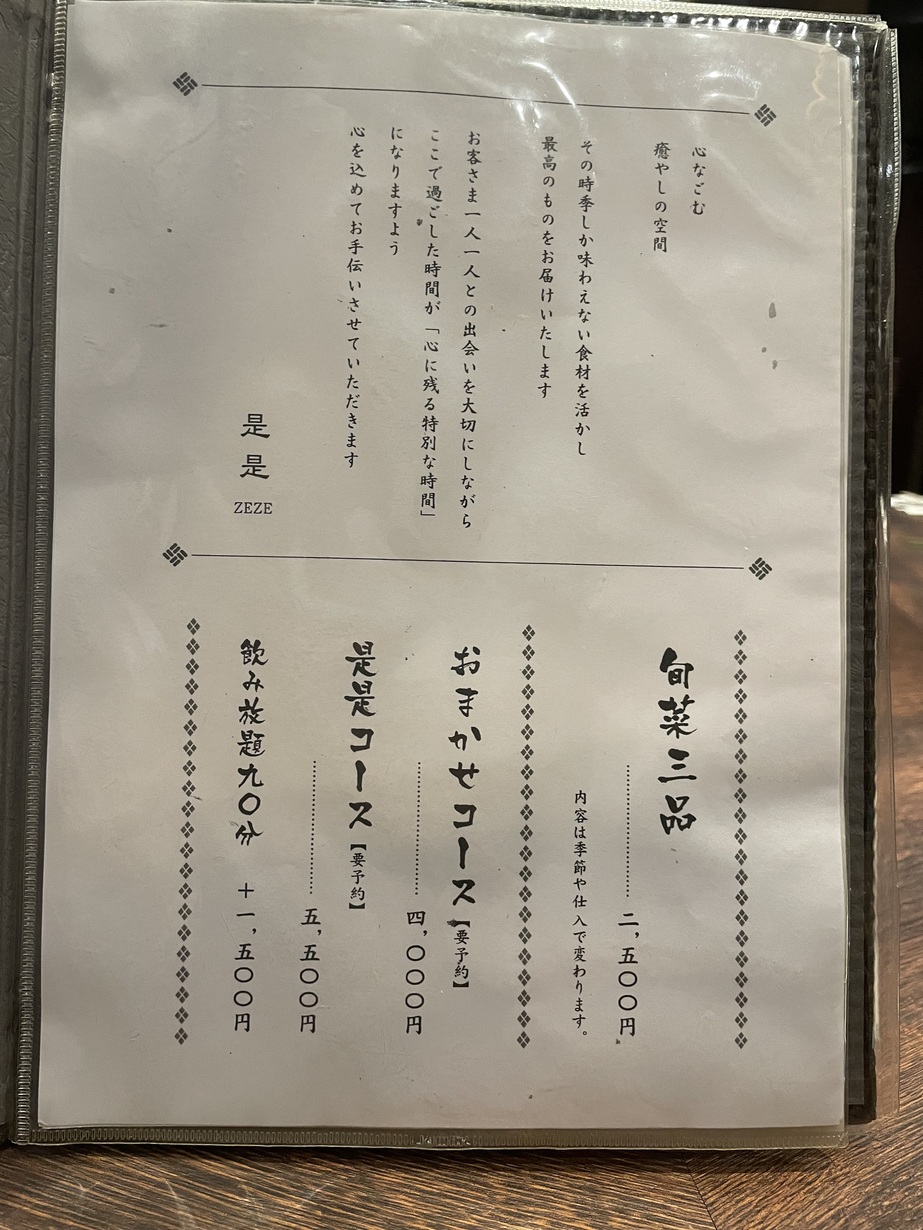 心なごむ
癒やしの空間
その時季しか味わえない食材を活かし
最高のものをお届けいたします
お客さま一人一人との出会いを大切にしながら
ここで過ごした時間が「心に残る特別な時間」
になりますよう
心を込めてお手伝いさせていただきます
是是
ZEZE
旬菜三品
二,五〇〇円
内容は季節や仕入で変わります。
おまかせコース【要予約】
四,〇〇〇円
是是コース【要予約】
五,五〇〇円
飲み放題九〇分 +一,五〇〇円